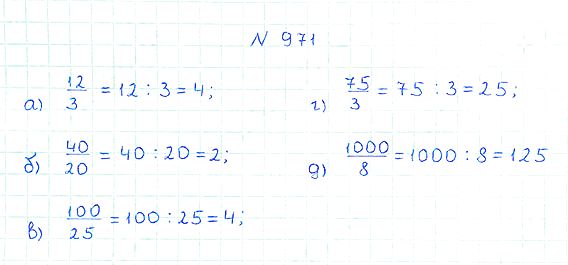 N 971
а) 12/3 = 12 : 3 = 4;
б) 40/20 = 40 : 20 = 2;
в) 100/25 = 100 : 25 = 4;
г) 75/3 = 75 : 3 = 25;
д) 1000/8 = 1000 : 8 = 125